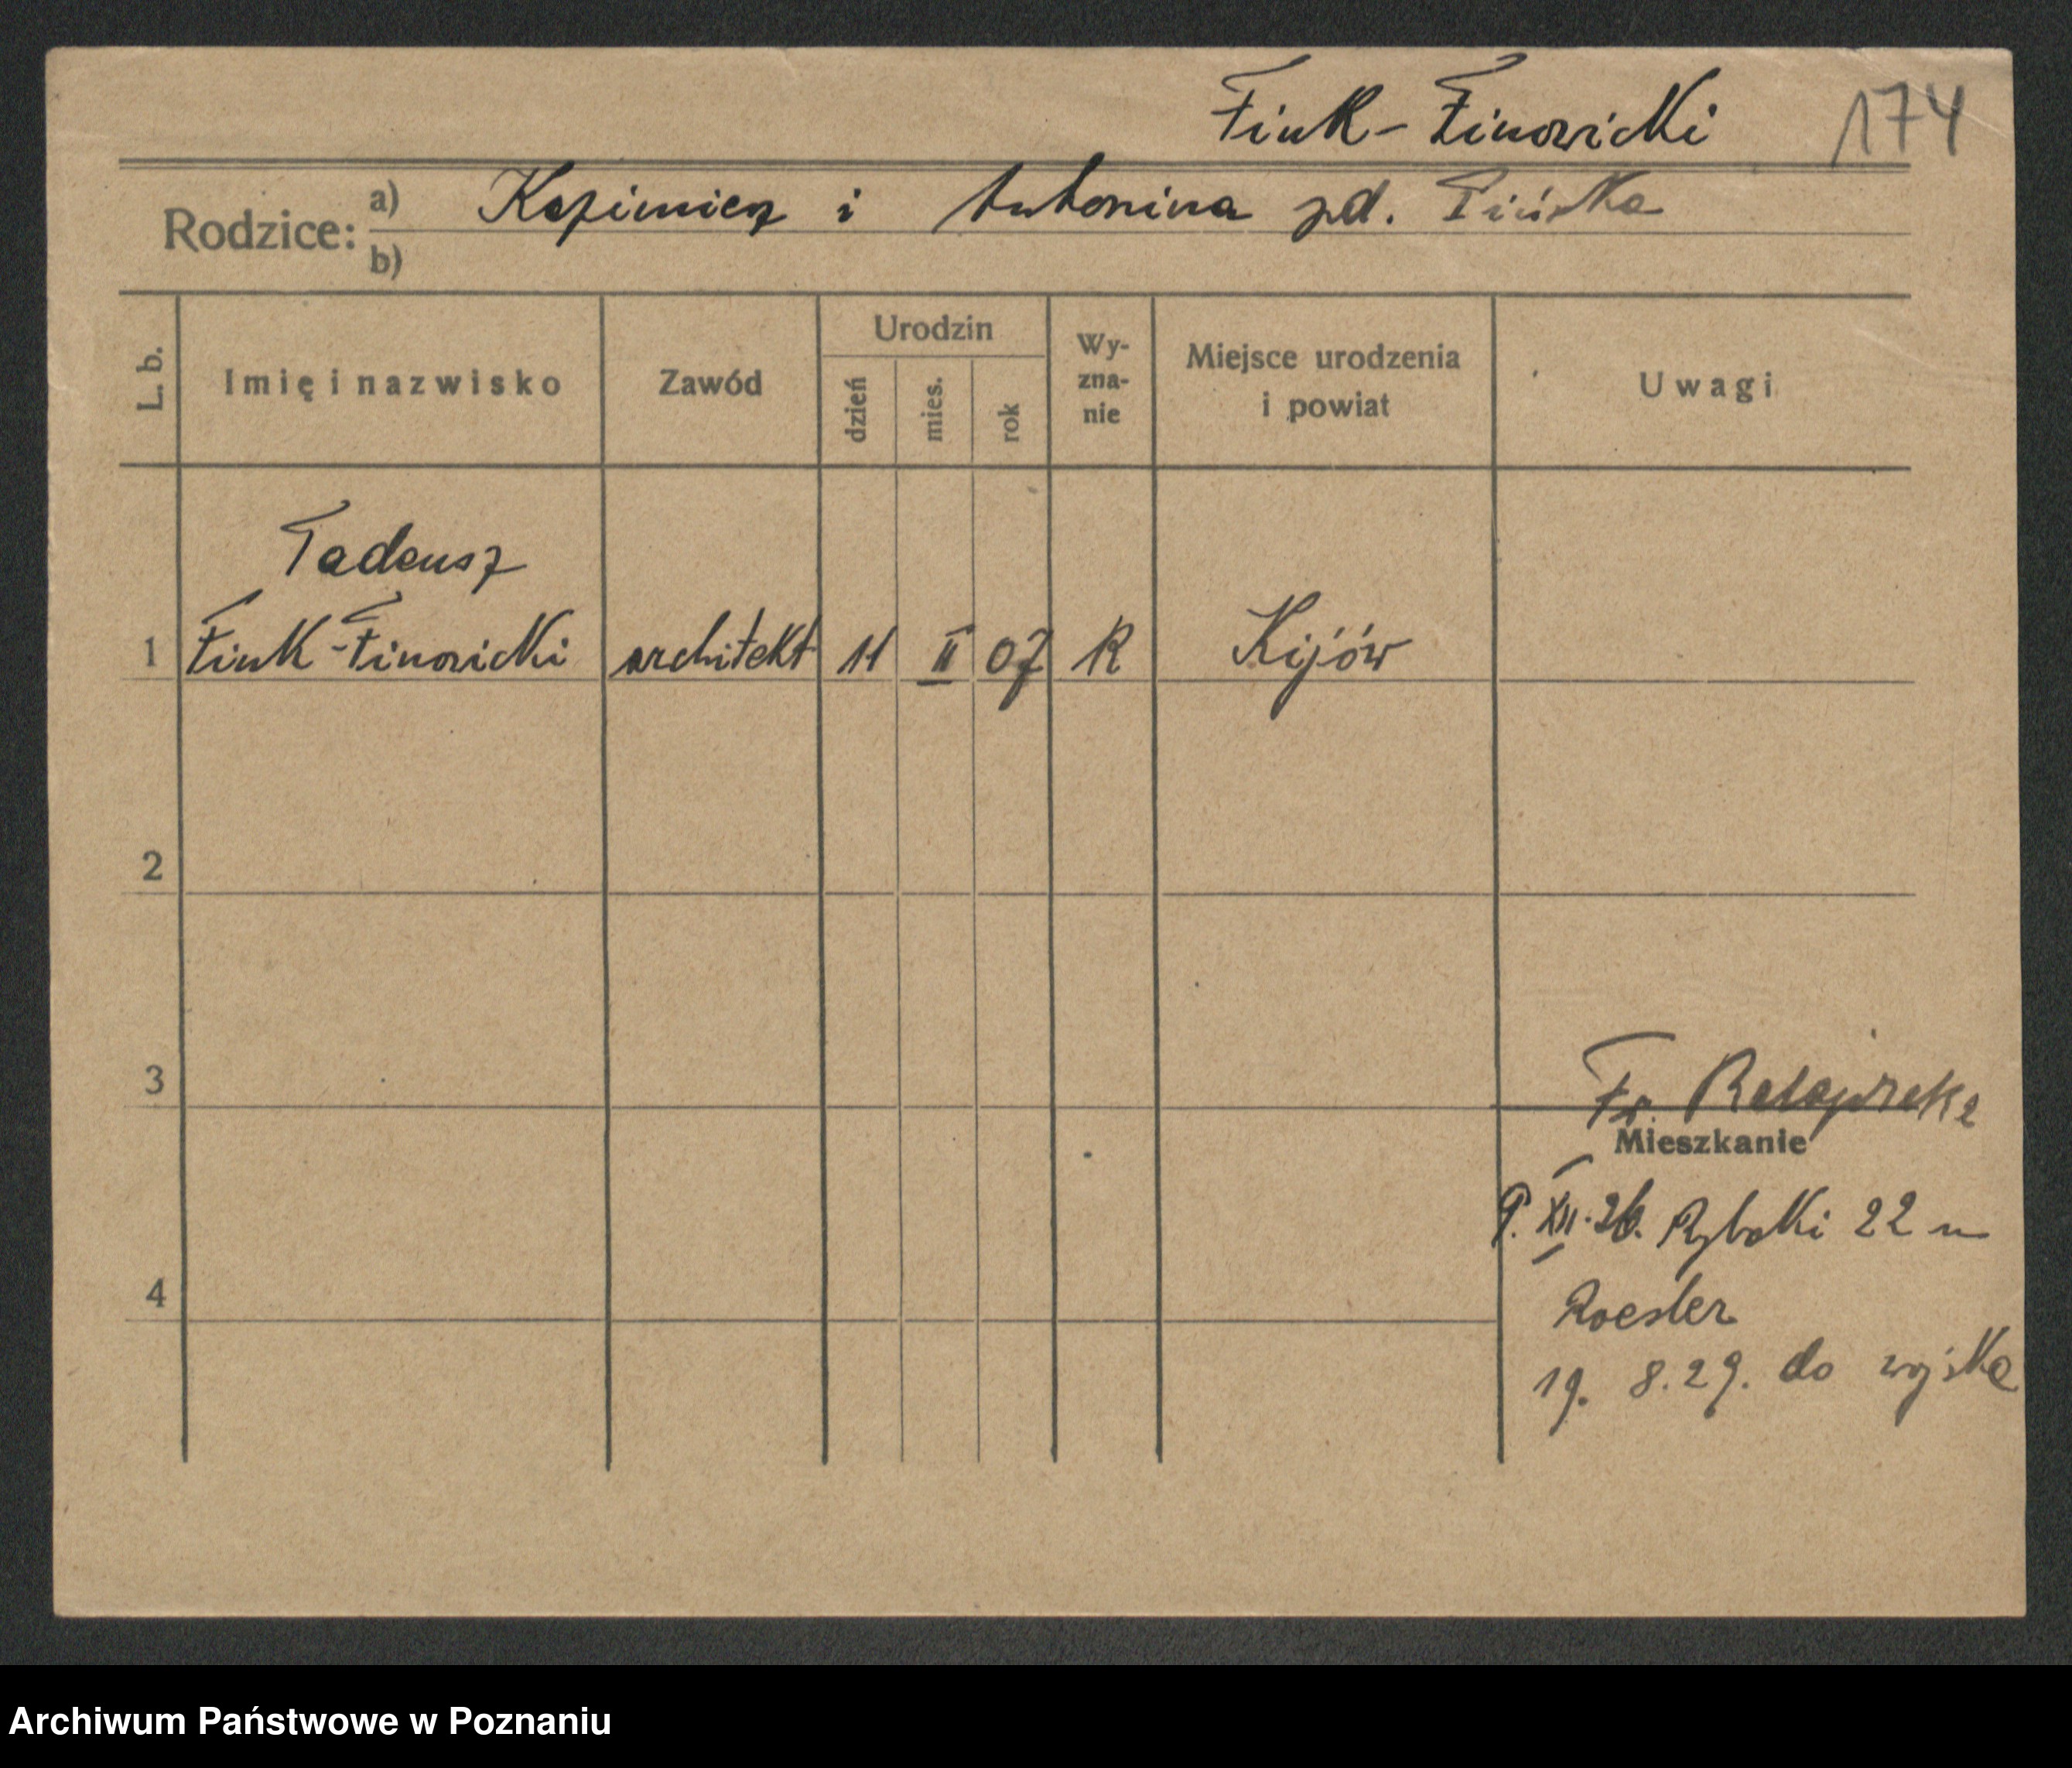 Fink-Finowicki 174
Rodzice: a) Kazimierz i Antonina zd.
b)
L. b. Imię i nazwisko Zawód Urodzin dzień mies. rok Wy-zna-nie Miejsce urodzenia i powiat Uwagi
Tadeusz
1 Fink-Finowicki architekt 11 II 07 R Kijów
2
3
Fr. Ratajczaka
Mieszkanie
9. XII. 26. Rybaki 22 u
4
Roesler
19. 8. 29. do wojska
Archiwum Państwowe w Poznaniu